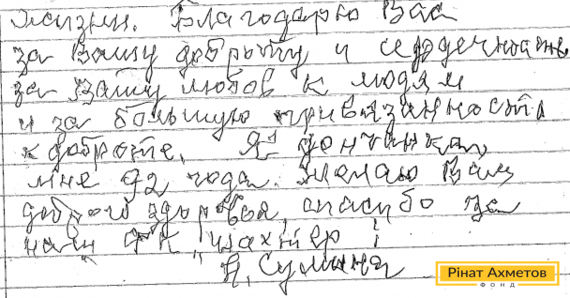 жизни. Благодарю Вас
за Вашу доброту и сердечность
за Вашу любов к людям
и за большую привязанность
к доброте. Я дончанка,
мне 92 года. Желаю Вам
доброго здоровья, спасибо за
наш ФК "Шахтер"!
Сулина
Рінат Ахметов
ФОНД